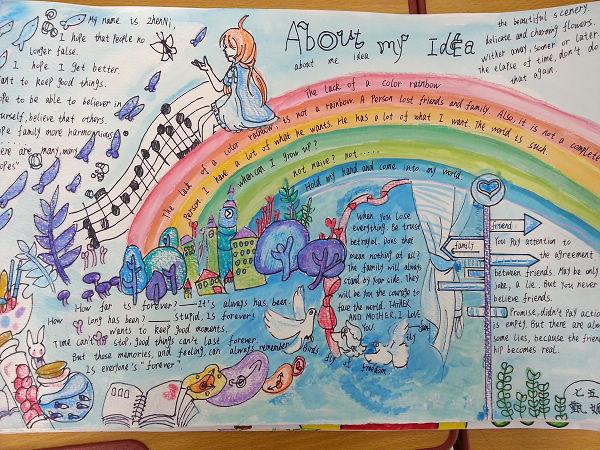 My name is zhenNi,
I hope that people no
longer false.
I hope I get better.
ant to keep good things.
pe to be able to believer in
urself, believe that others.
pe family more harmonious
......
ere are many, many
opes"
About my IdEa
about me idea
the beautiful scenery.
delicate and charming flowers.
wither away, sooner or later.
the elapse of time, don't do
that again.
The lack of a color rainbow
The lack of a color rainbow, is not a rainbow. A Person lost friends and family. Also, it is not a complete
Person. I have a lot of what he wants. He has a lot of what I want. The world is such.
when can I grow up?
not naive? not.....
Hold my hand and come into my world.
When you lose
everything. Be trust
betrayal. Does that
mean nothing at all?
The family will always
stand by your side. They
will be you the courage to
face the world. FatHER
AND MOTHER, I LOVE
YOU.
friend
family
You Pay attention to
the agreement
between friends. May be only
joke, a lie. But you never
believe friends.
Promise, didn't Pay action
is empty. But there are alwa
some lies, because the frien
hip becomes real.
How far is forever? — It's always has been.
How long has been? — Stupid, Is forever!
wants to keep good moments.
Time can't stop, good things can't last forever
But those memories, and feeling, can always remember
Is everyone's "forever"
birds fly of freedom
fly